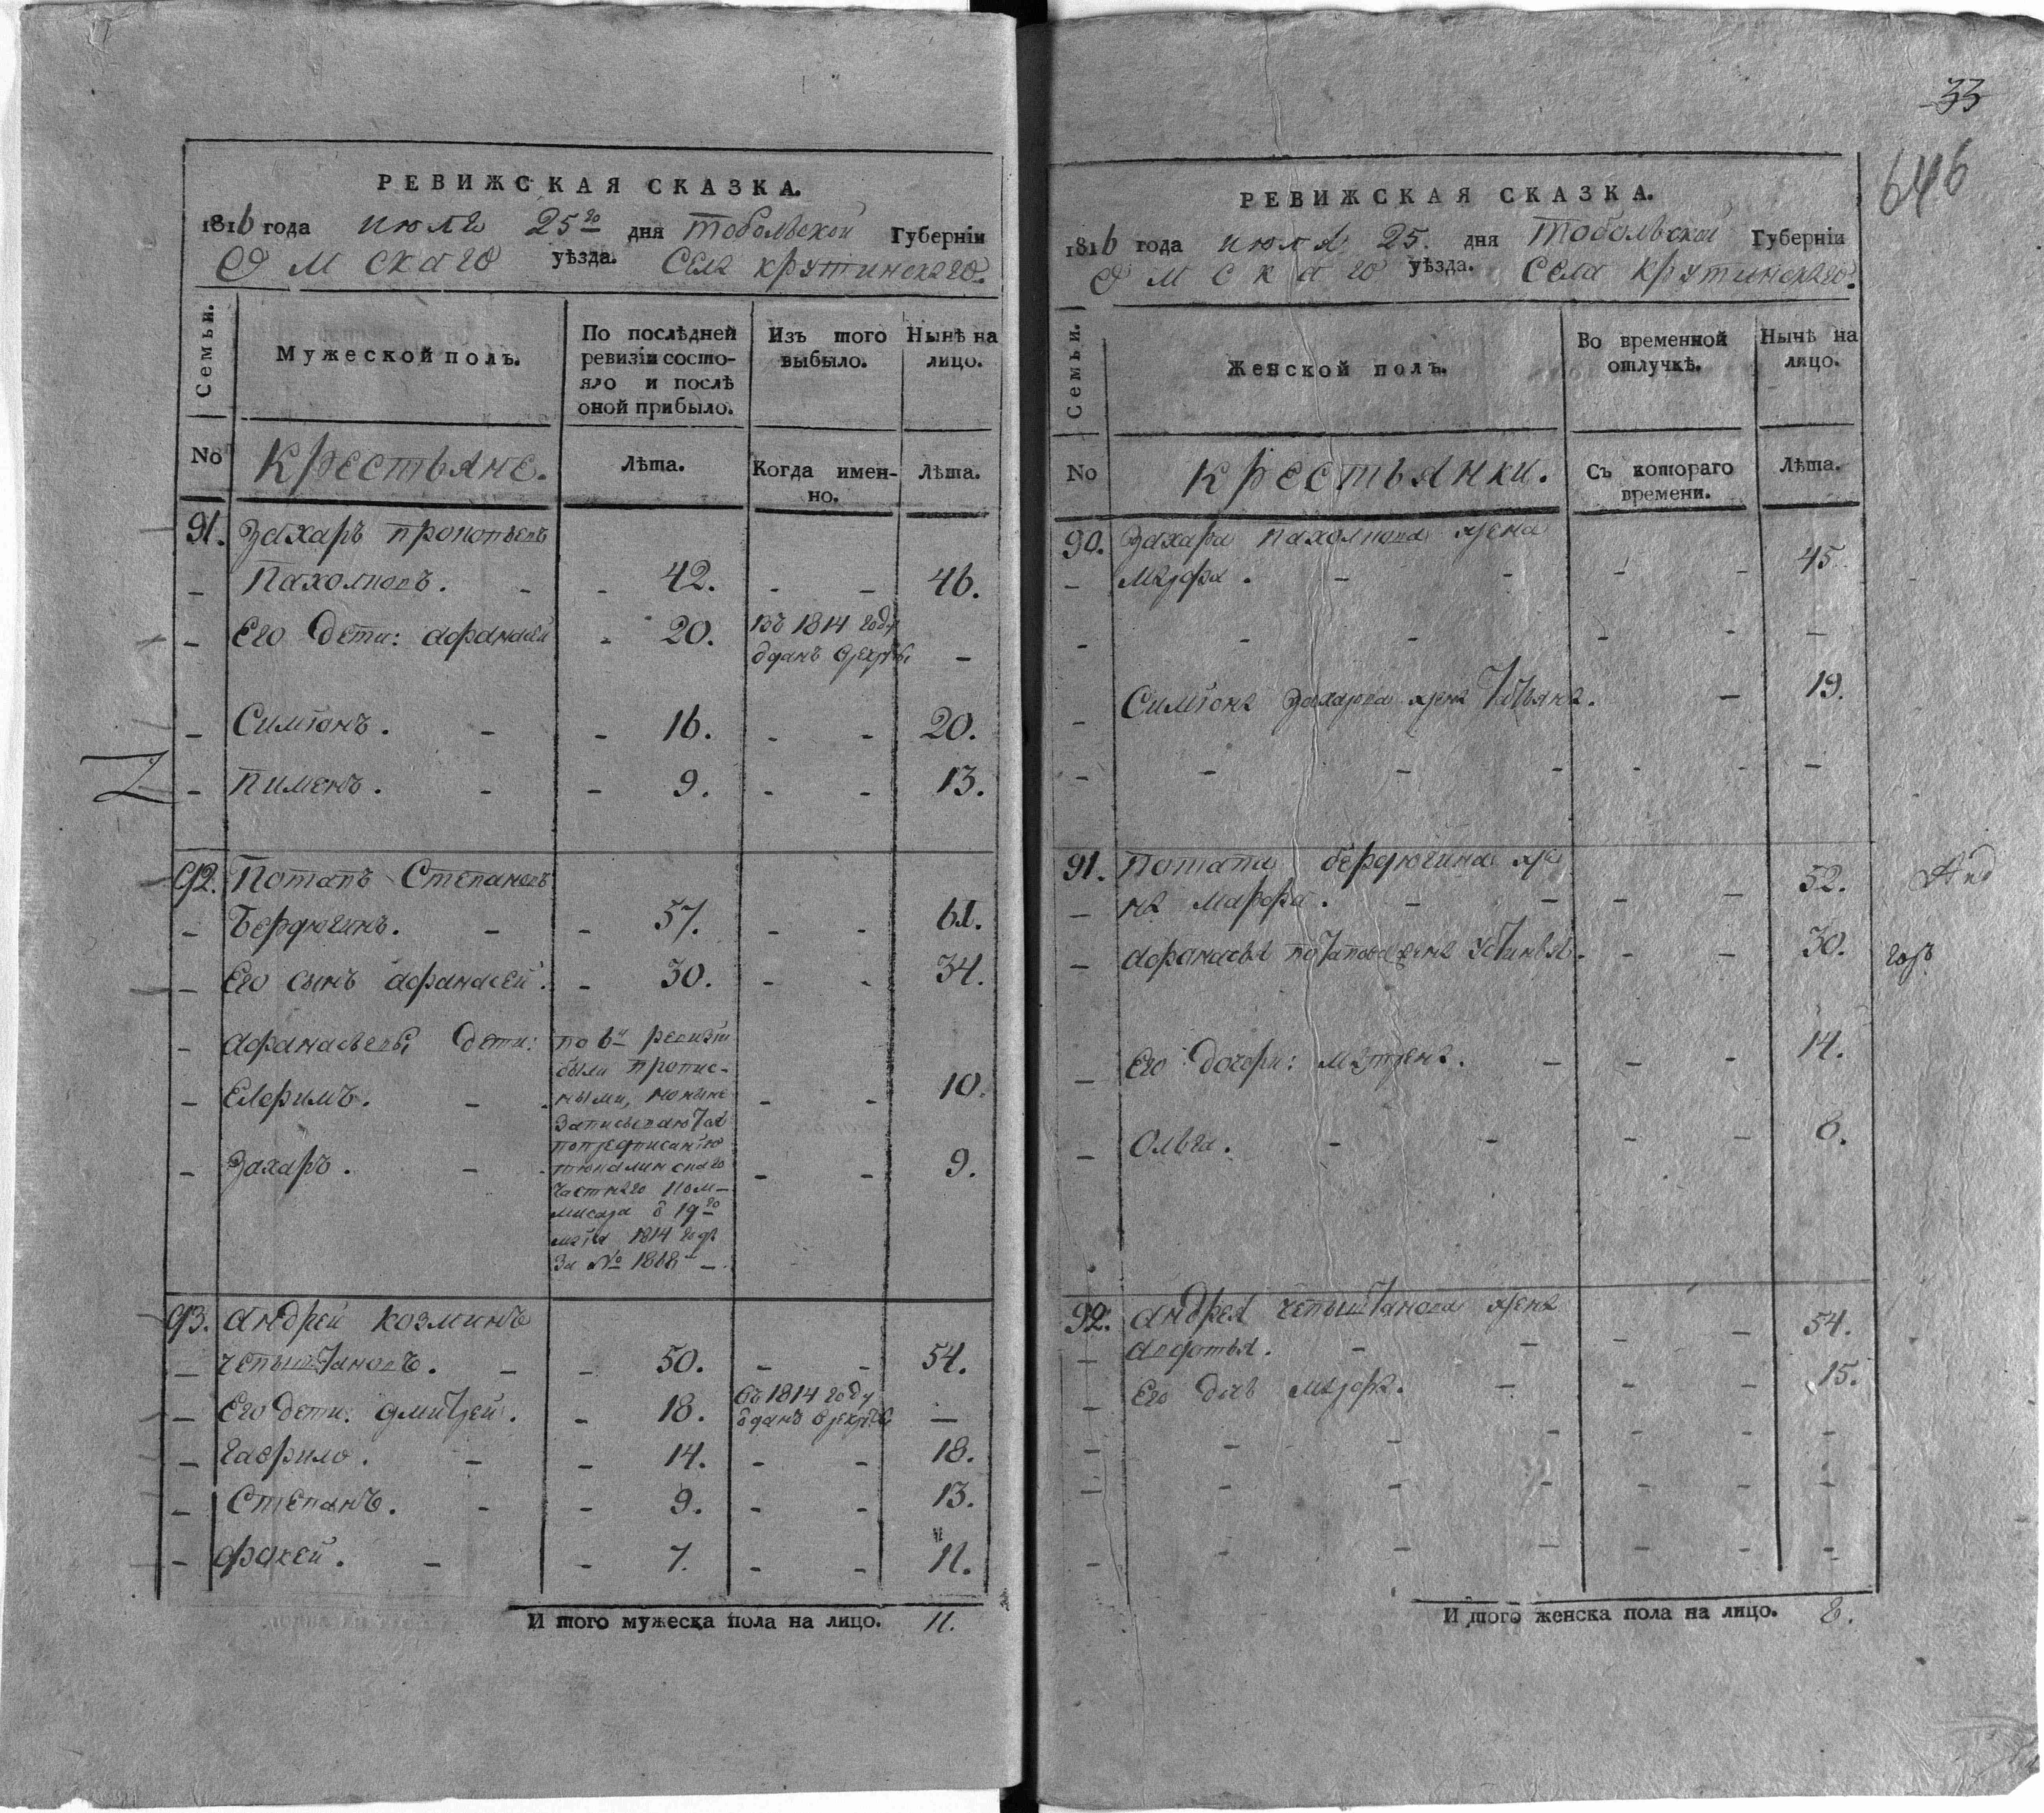 33
646
РЕВИЖСКАЯ СКАЗКА.
1816 года июля 25го дня Тобольской Губерніи
Омскаго уѣзда. Села Крутинскаго.
Семьи.
Мужеской полъ.
По послѣдней ревизіи состояло и послѣ оной прибыло.
Изъ того выбыло.
Нынѣ на лицо.
No
Крестьяне.
Лѣта.
Когда именно.
Лѣта.
91. Захаръ Прокопьевъ
Пахолковъ. 42. 46.
Его дети: Афанасей 20. Въ 1814 году
отданъ в рекруты
Симіонъ. 16. 20.
Пименъ. 9. 13.
92. Потапъ Степановъ
Бердюгинъ. 57. 61.
Его сынъ Афанасей. 30. 34.
Афанасьевы дети: по 6й ревизіи
были пропис-
Ефримъ. ными, но ныне 10.
записываются
по предписанію
Захаръ. Тюкалинскаго 9.
частнаго ком-
мисара о 19го
маія 1814 года
за № 1818м
93. Андрей Козминъ
Чепыштановъ. 50. 54.
Его дети: Дмитрей. 18. Въ 1814 году
отданъ в рекруты
Гаврило. 14. 18.
Степанъ. 9. 13.
Фокей. 7. 11.
И того мужеска пола на лицо. 11.
РЕВИЖСКАЯ СКАЗКА.
1816 года июля 25. дня Тобольской Губерніи
Омскаго уѣзда. Села Крутинскаго.
Семьи.
Женской полъ.
Во временной отлучкѣ.
Нынѣ на лицо.
No
Крестьянки.
Съ котораго времени.
Лѣта.
90. Захара Пахолкова жена
Марфа. 45.
Симіона Захарова жена Татьяна. 19.
91. Потапа Бердюгина же
на Марфа. 52.
Афанасья Потапова жена Устинья. 30.
Его дочери: Матрена. 14.
Ольга. 8.
92. Андрея Чепыштанова жена
Авдотья. 54.
Его дочь Марфа. 15.
И того женска пола на лицо. 8.